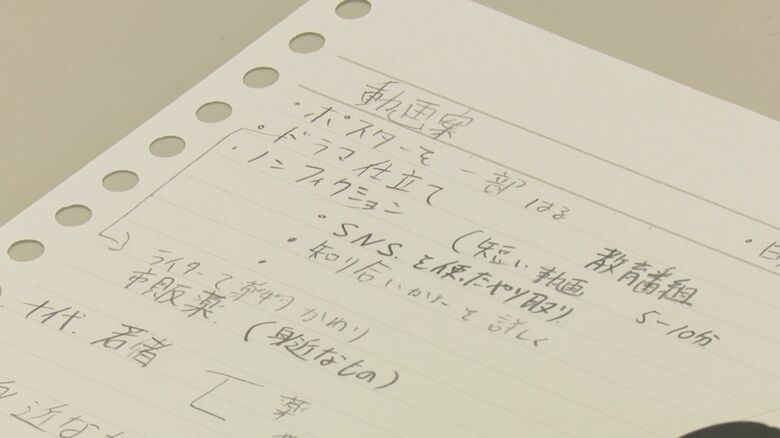 動画案
・ポスターを一部はる
・ドラマ仕立て
・ノンフィクション
(短い動画 教育番組 5-10分
・SNSを使ったやり取り
・知り合いから
を詳しく
ライターで
かわり
市販薬 (身近なもの)
十代、若者
薬
身近な
・日